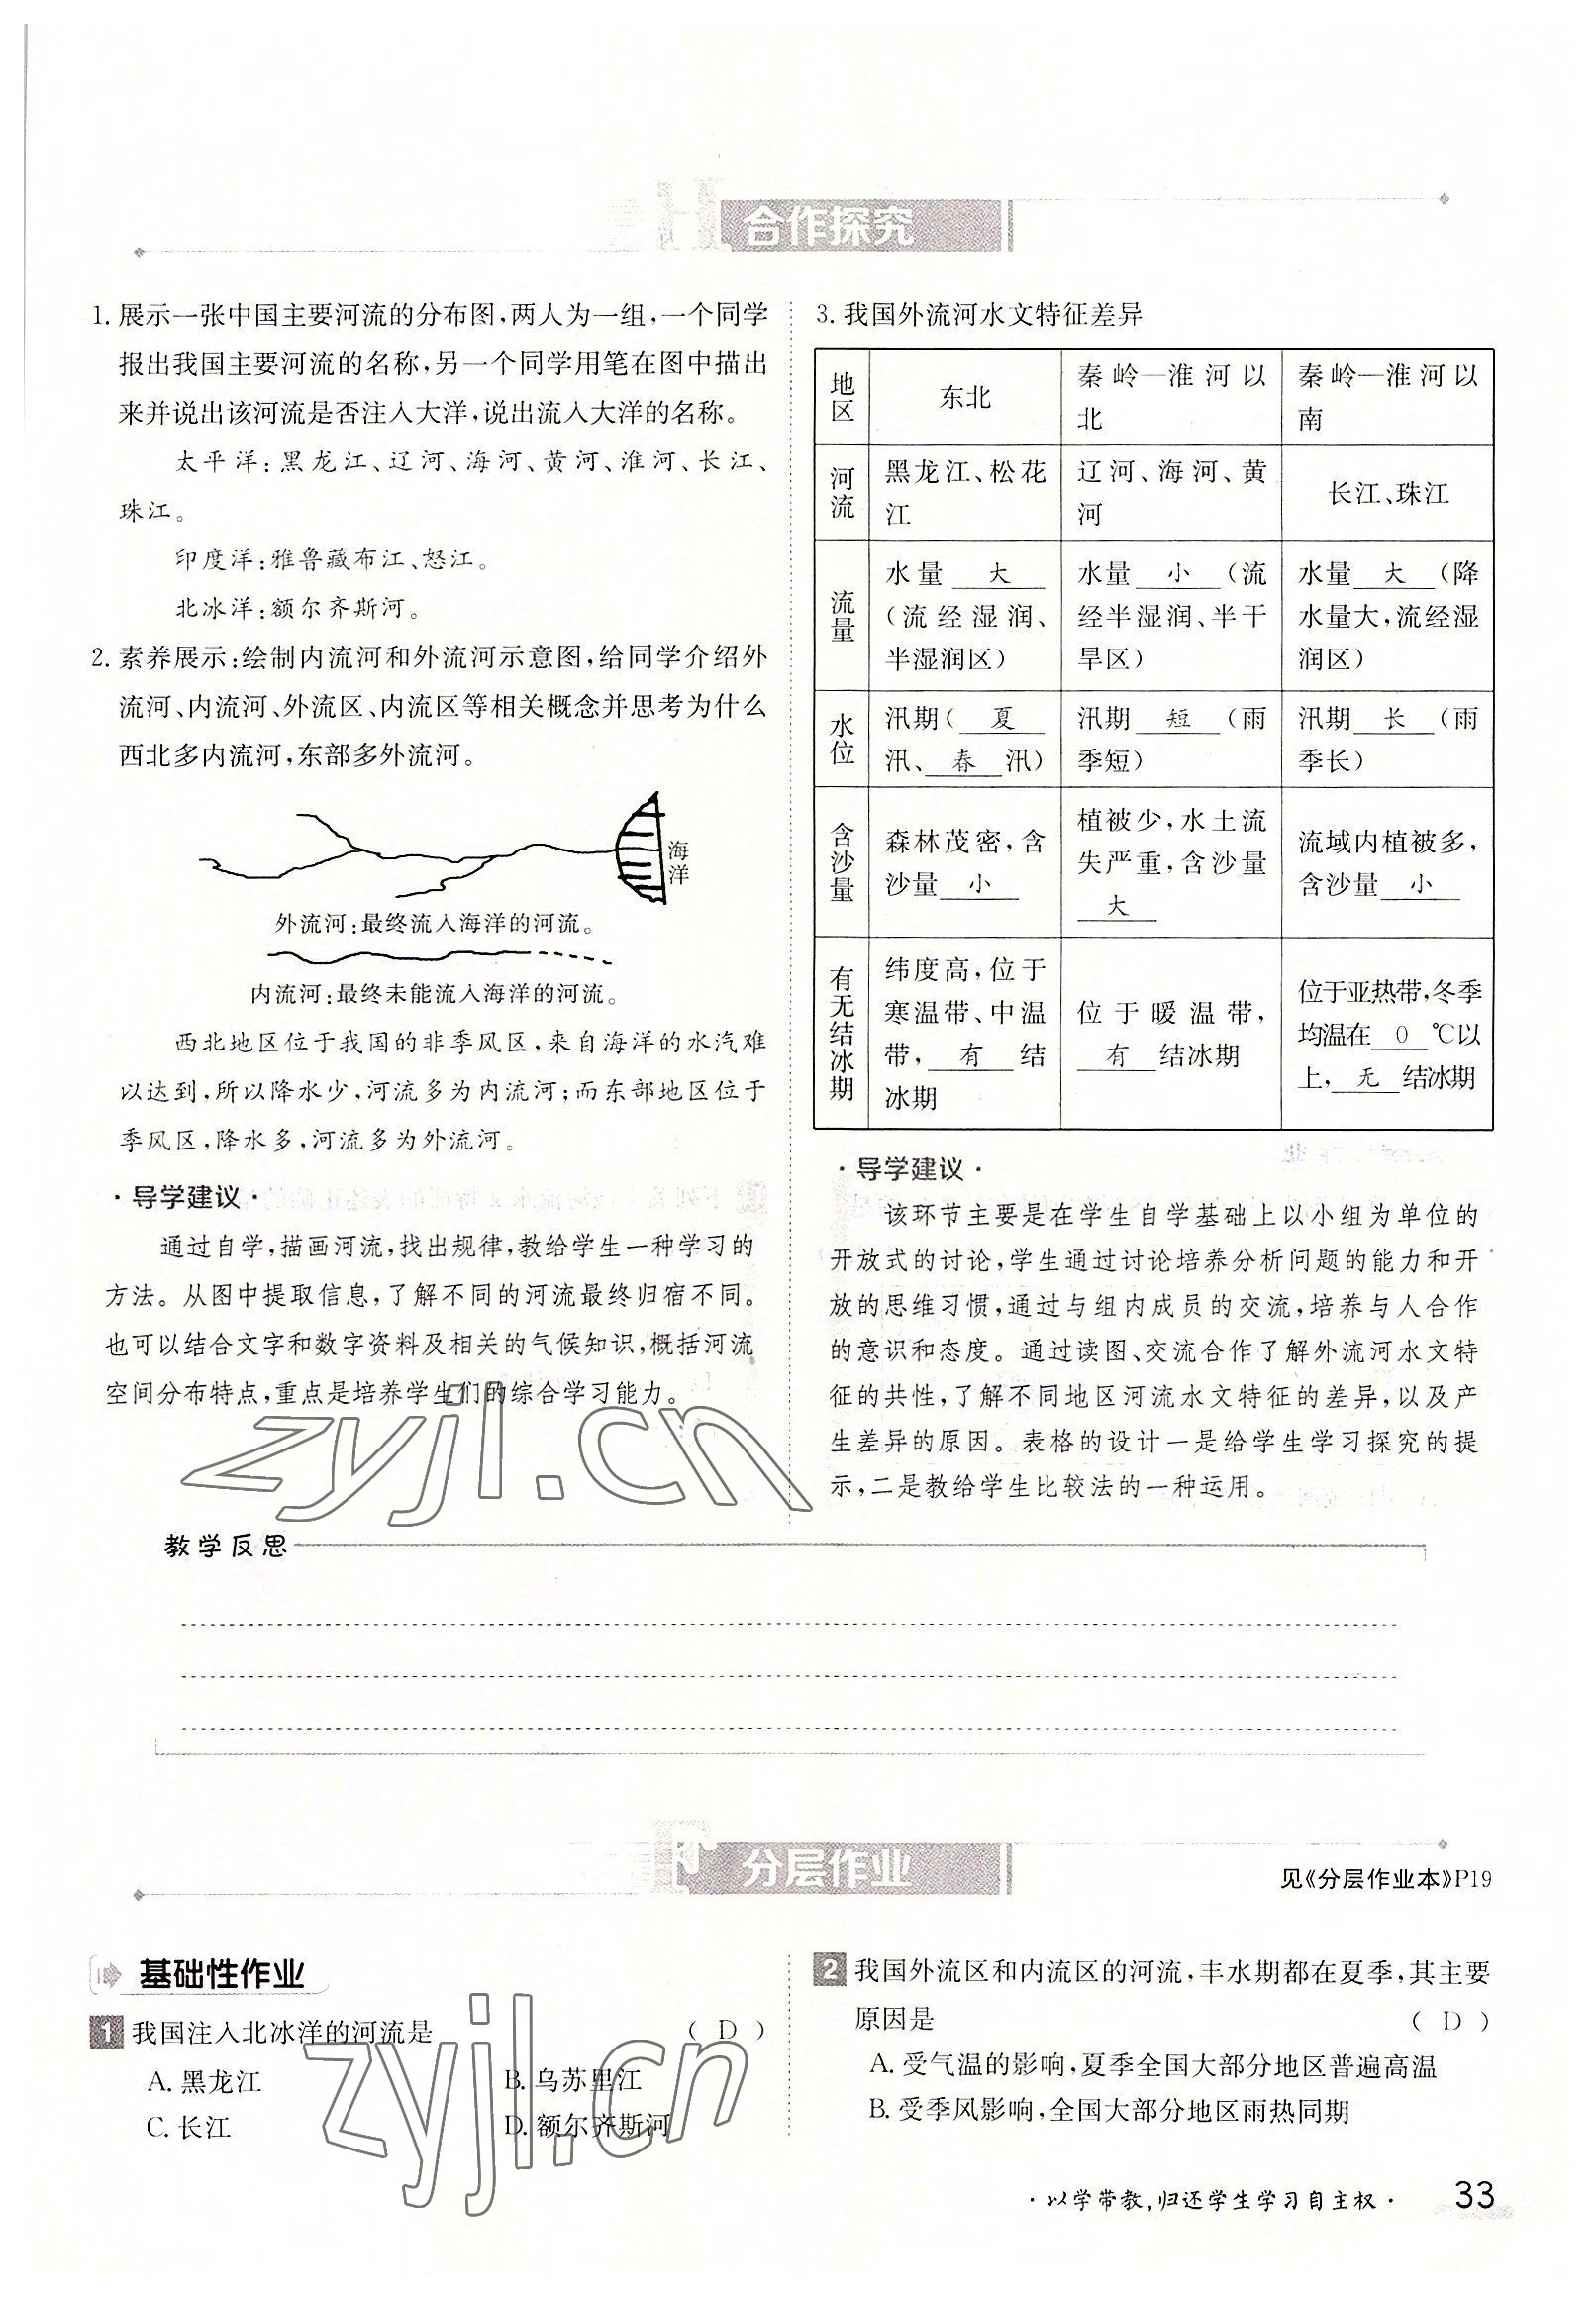 合作探究
1. 展示一张中国主要河流的分布图,两人为一组,一个同学
报出我国主要河流的名称,另一个同学用笔在图中描出
来并说出该河流是否注入大洋,说出流入大洋的名称。
太平洋:黑龙江、辽河、海河、黄河、淮河、长江、
珠江。
印度洋:雅鲁藏布江、怒江。
北冰洋:额尔齐斯河。
2. 素养展示:绘制内流河和外流河示意图,给同学介绍外
流河、内流河、外流区、内流区等相关概念并思考为什么
西北多内流河,东部多外流河。
海洋
外流河:最终流入海洋的河流。
内流河:最终未能流入海洋的河流。
西北地区位于我国的非季风区,来自海洋的水汽难
以达到,所以降水少,河流多为内流河;而东部地区位于
季风区,降水多,河流多为外流河。
·导学建议·
通过自学,描画河流,找出规律,教给学生一种学习的
方法。从图中提取信息,了解不同的河流最终归宿不同。
也可以结合文字和数字资料及相关的气候知识,概括河流
空间分布特点,重点是培养学生们的综合学习能力。
3. 我国外流河水文特征差异
地区 东北 秦岭—淮河以北 秦岭—淮河以南
河流 黑龙江、松花江 辽河、海河、黄河 长江、珠江
流量 水量 大 (流经湿润、半湿润区) 水量 小 (流经半湿润、半干旱区) 水量 大 (降水量大,流经湿润区)
水位 汛期( 夏 汛、 春 汛) 汛期 短 (雨季短) 汛期 长 (雨季长)
含沙量 森林茂密,含沙量 小 植被少,水土流失严重,含沙量 大 流域内植被多,含沙量 小
有无结冰期 纬度高,位于寒温带、中温带, 有 结冰期 位于暖温带, 有 结冰期 位于亚热带,冬季均温在 0 ℃以上, 无 结冰期
·导学建议·
该环节主要是在学生自学基础上以小组为单位的
开放式的讨论,学生通过讨论培养分析问题的能力和开
放的思维习惯,通过与组内成员的交流,培养与人合作
的意识和态度。通过读图、交流合作了解外流河水文特
征的共性,了解不同地区河流水文特征的差异,以及产
生差异的原因。表格的设计一是给学生学习探究的提
示,二是教给学生比较法的一种运用。
zyjl.cn
教学反思
分层作业
见《分层作业本》P19
基础性作业
1 我国注入北冰洋的河流是 ( D )
A. 黑龙江 B. 乌苏里江
C. 长江 D. 额尔齐斯河
zyjl.cn
2 我国外流区和内流区的河流,丰水期都在夏季,其主要
原因是 ( D )
A. 受气温的影响,夏季全国大部分地区普遍高温
B. 受季风影响,全国大部分地区雨热同期
·以学带教,归还学生学习自主权· 33